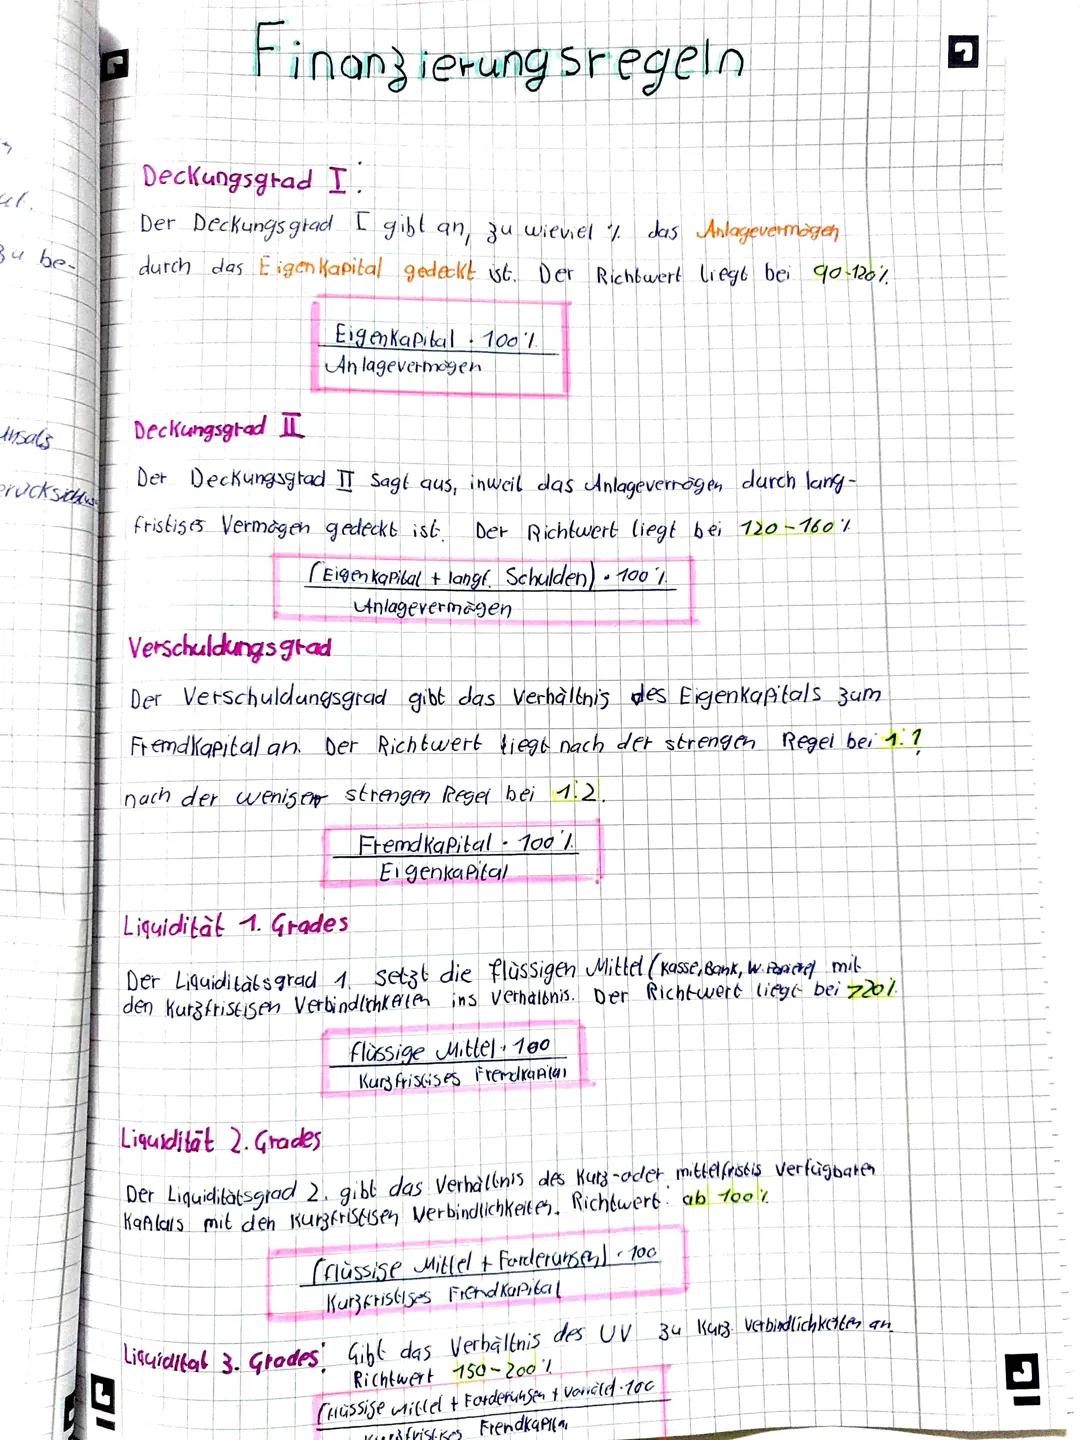 Finanzierungsregeln
Deckungsgrad I:
Der Deckungsgrad I gibt an, zu wieviel % das Anlagevermögen
durch das Eigenkapital gedeckt ist. Der Richtwert liegt bei 90-120%
Eigenkapital · 100%
Anlagevermögen
Deckungsgrad II
Der Deckungsgrad II sagt aus, inweil das Anlagevermögen durch lang-
fristiges Vermögen gedeckt ist. Der Richtwert liegt bei 120-160%
(Eigenkapital + langf. Schulden) · 100%
Anlagevermögen
Verschuldungsgrad
Der Verschuldungsgrad gibt das Verhältnis des Eigenkapitals zum
Fremdkapital an. Der Richtwert liegt nach der strengen Regel bei 1:1,
nach der weniger strengen Regel bei 1:2.
Fremdkapital · 100%
Eigenkapital
Liquidität 1. Grades
Der Liquiditätsgrad 1. setzt die flüssigen Mittel (Kasse, Bank, W. Papiere) mit
den kurzfristigen Verbindlichkeiten ins Verhältnis. Der Richtwert liegt bei >20%
flüssige Mittel · 100
Kurzfristiges Fremdkapital
Liquidität 2. Grades
Der Liquiditätsgrad 2. gibt das Verhältnis des Kurz-oder mittelfristig verfügbaren
Kapitals mit den kurzfristigen Verbindlichkeiten. Richtwert: ab 100%
(flüssige Mittel + Forderungen) · 100
Kurzfristiges Fremdkapital
Liquidität 3. Grades: Gibt das Verhältnis des UV zu Kurz. Verbindlichkeiten an.
Richtwert 150-200%
(flüssige Mittel + Forderungen + Vorräte) · 100
Kurzfristiges Fremdkapital
zu be-